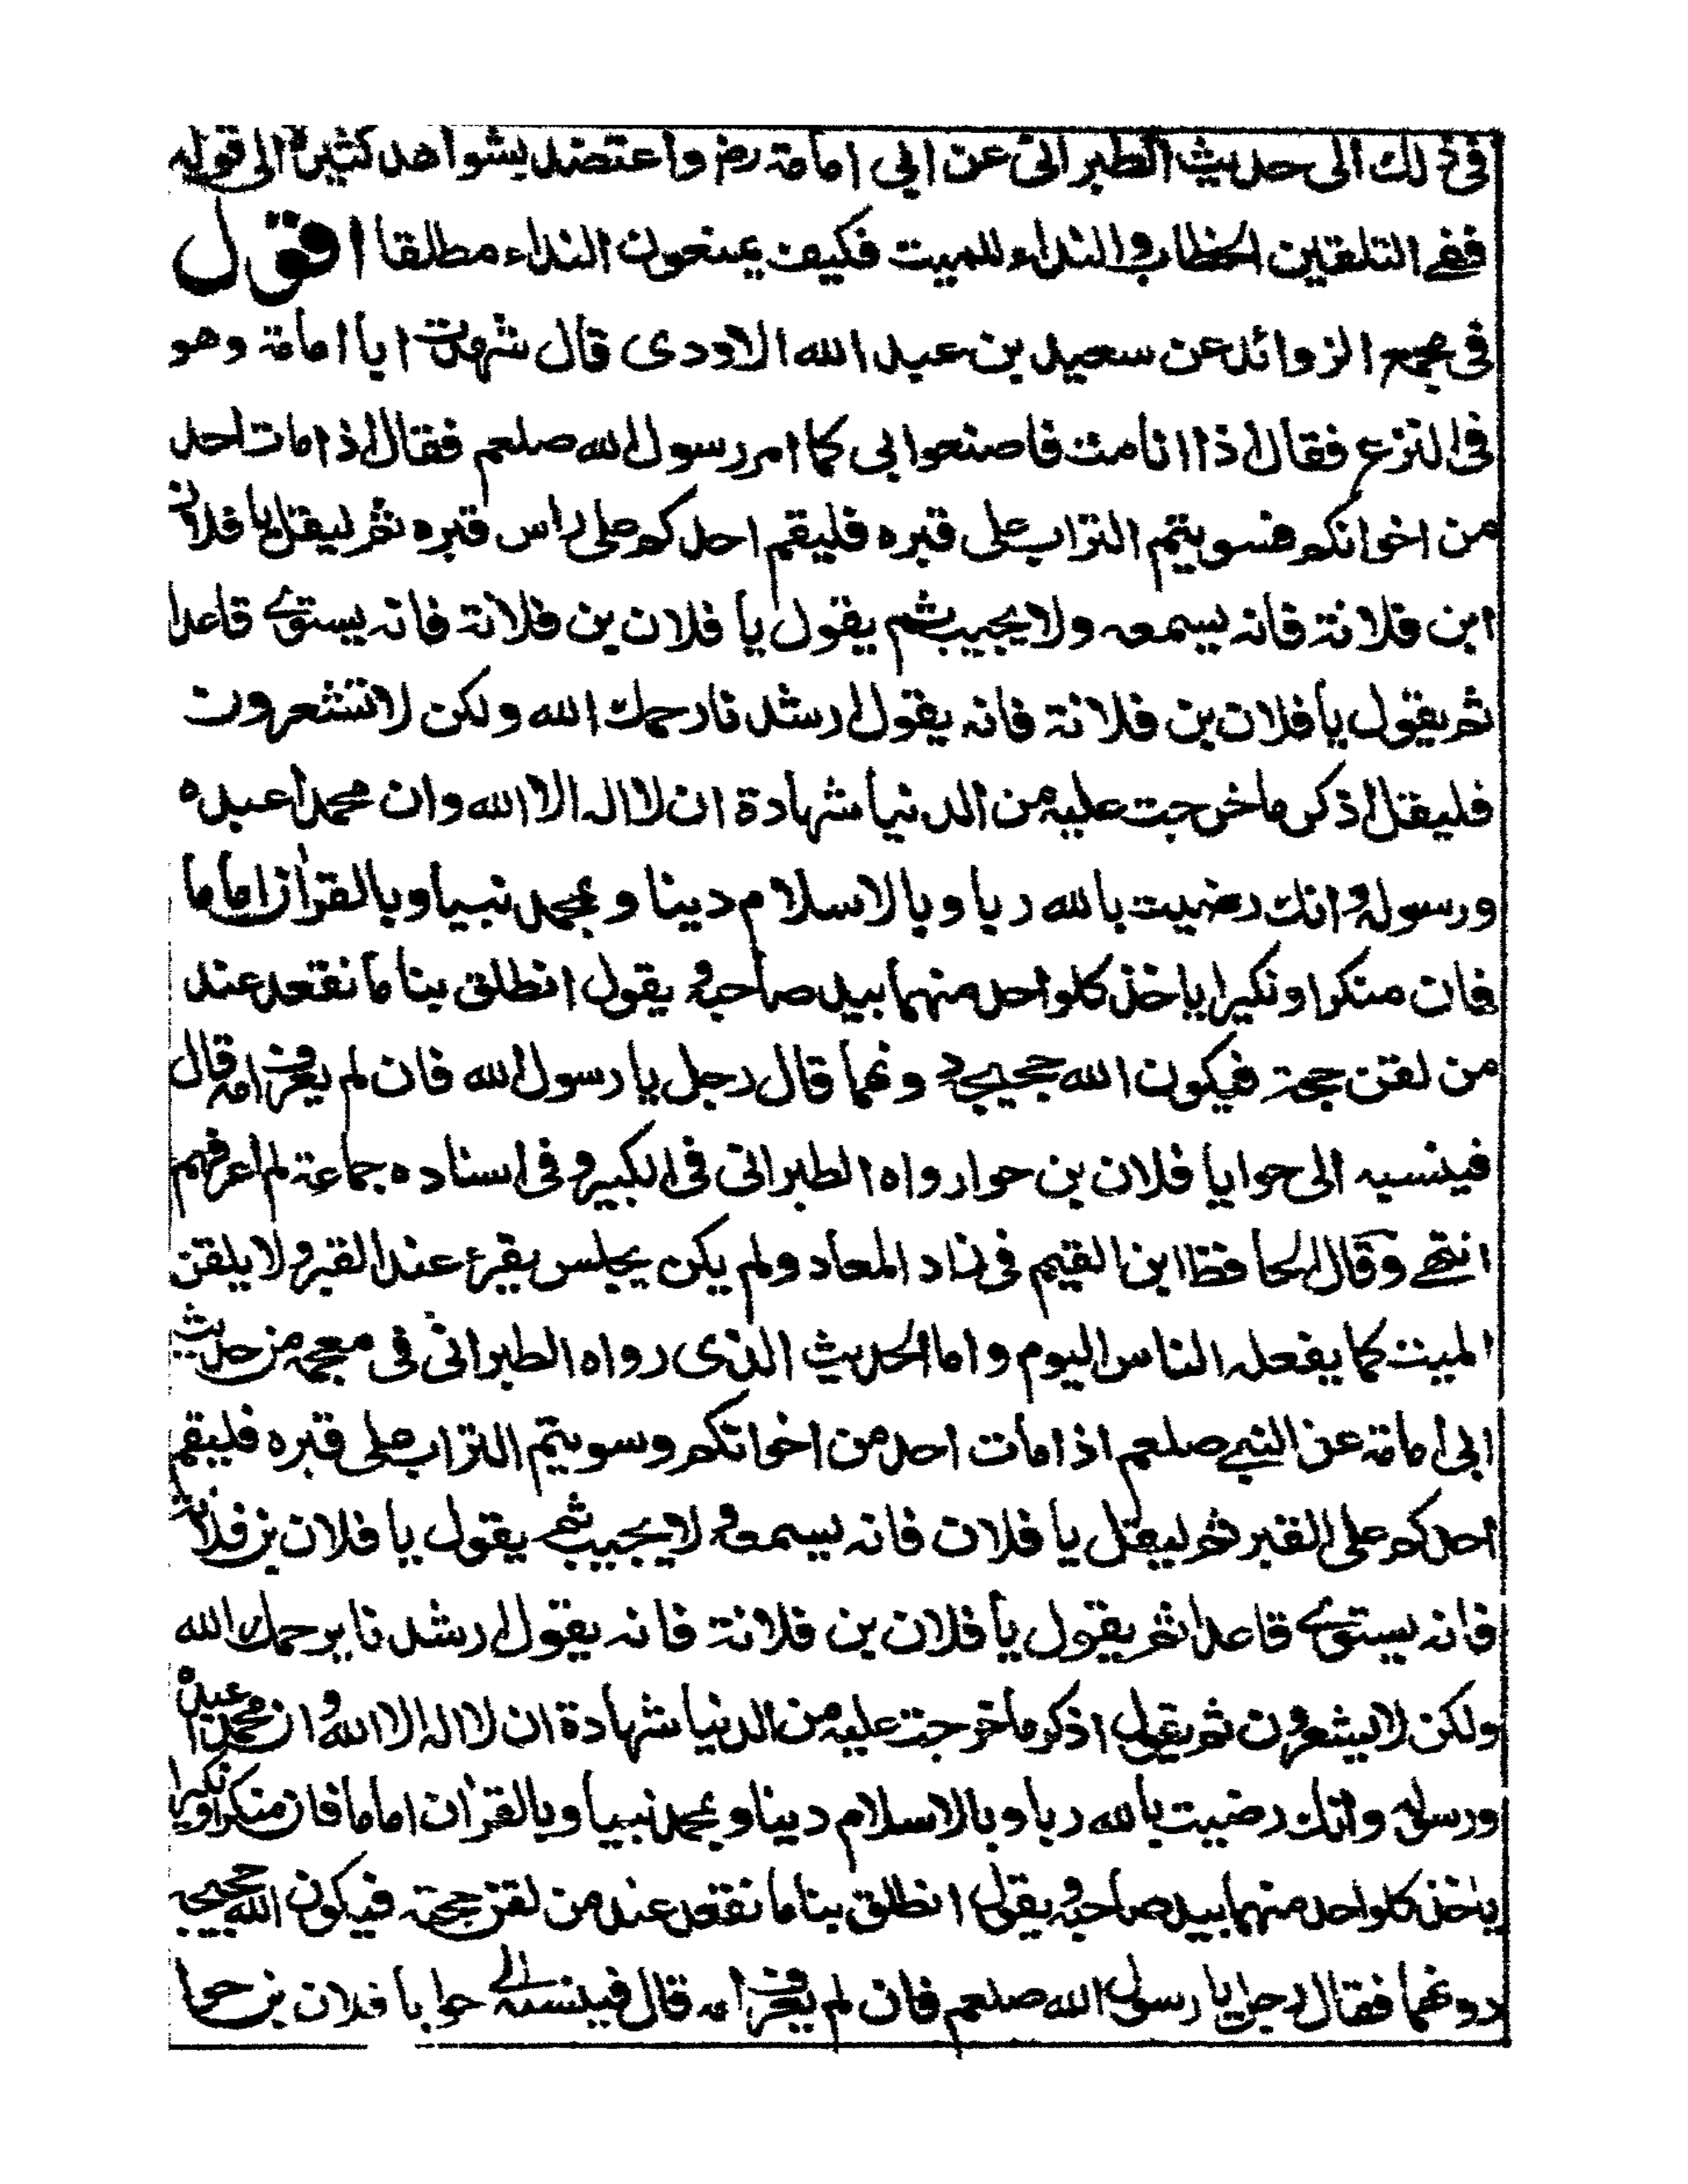 فى ذلك الى حديث الطبرانى عن ابى امامة رضـ واعتضد بشواهد كثيرة الى قوله
ففى التلقين الخطاب والنداء للميت فكيف يمنعون النداء مطلقا اقول
فى مجمع الزوائد عن سعيد بن عبد الله الاودى قال شهدت ابا امامة وهو
فى النزع فقال اذا انا مت فاصنعوا بى كما امر رسول الله صلعم فقال اذا مات احد
من اخوانكم فسويتم التراب على قبره فليقم احدكم على راس قبره ثم ليقل يا فلان
ابن فلانة فانه يسمعه ولا يجيب ثم يقول يا فلان بن فلانة فانه يستوے قاعدا
ثم يقول يا فلان بن فلانة فانه يقول ارشدنا رحمك الله ولكن لا تشعرون
فليقل اذكر ما خرجت عليه من الدنيا شهادة ان لا اله الا الله وان محمدا عبده
ورسوله وانك رضيت بالله ربا وبالاسلام دينا وبمحمد نبيا وبالقرآن اماما
فان منكرا ونكيرا ياخذ كلواحد منهما بيد صاحبه ويقول انطلق بنا ما نقعد عند
من لقن حجته فيكون الله حجيجه دونهما قال رجل يا رسول الله فان لم يعرف امه قال
فينسبه الى حوا يا فلان بن حوا رواه الطبرانى فى الكبير وفى اسناده جماعة لم اعرفهم
انتهے وقال الحافظ ابن القيم فى زاد المعاد ولم يكن يجلس يقرء عند القبر ولا يلقن
الميت كما يفعله الناس اليوم واما الحديث الذى رواه الطبرانى فى معجمه من حديث
ابى امامة عن النبے صلعم اذا مات احد من اخوانكم وسويتم التراب على قبره فليقم
احدكم على القبر ثم ليقل يا فلان فانه يسمعه ولا يجيب ثم يقول يا فلان بن فلانة
فانه يستوے قاعدا ثم يقول يا فلان بن فلانة فانه يقول ارشدنا يرحمك الله
ولكن لا يشعرون ثم يقول اذكر ما خرجت عليه من الدنيا شهادة ان لا اله الا الله وان محمدا عبده
ورسوله وانك رضيت بالله ربا وبالاسلام دينا وبمحمد نبيا وبالقرآن اماما فان منكرا ونكيرا
ياخذ كلواحد منهما بيد صاحبه ويقول انطلق بنا ما نقعد عند من لقن حجته فيكون الله حجيجه
دونهما فقال رجل يا رسول الله صلعم فان لم يعرف امه قال فينسبه الى حوا يا فلان بن حوا